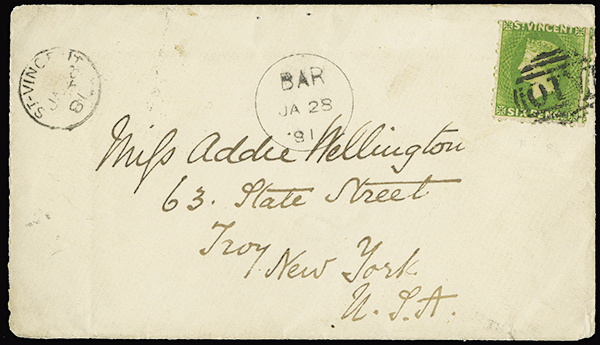 ST. VINCENT
SIX PENCE
ST-VINCENT
JA
81
BAR
JA 28
'81
Miss Addie Wellington
63. State Street
Troy
New York
U.S.A.